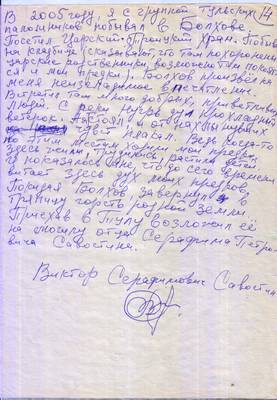 В 2005 году, я с группой Тульских
паломников побывал в Болхове.
Посетил Царский-Троицкий Храм. Побывал
на кладбище (сказывают, что там похоронены
царские родственники, возможно там покоят-
ся и мои предки). Болхов произвёл на
меня неизгладимое впечатление.
Встретил там много добрых, приветливых
людей. С реки Нугрь дул прохладный
ветерок. А я стоял и от нахлынувших
чувств плакал. Ведь когда-то
по этим местам ходили мои предки
здесь жили трудились растили детей
И показалось мне что до сего времени
витает здесь дух моих предков.
Покидая Болхов завернул я в
тряпицу горсть родной земли.
Приехав в Тулу возложил её
на могилу отца Серафима Петро-
вича Савостина.
Виктор Серафимович Савостин